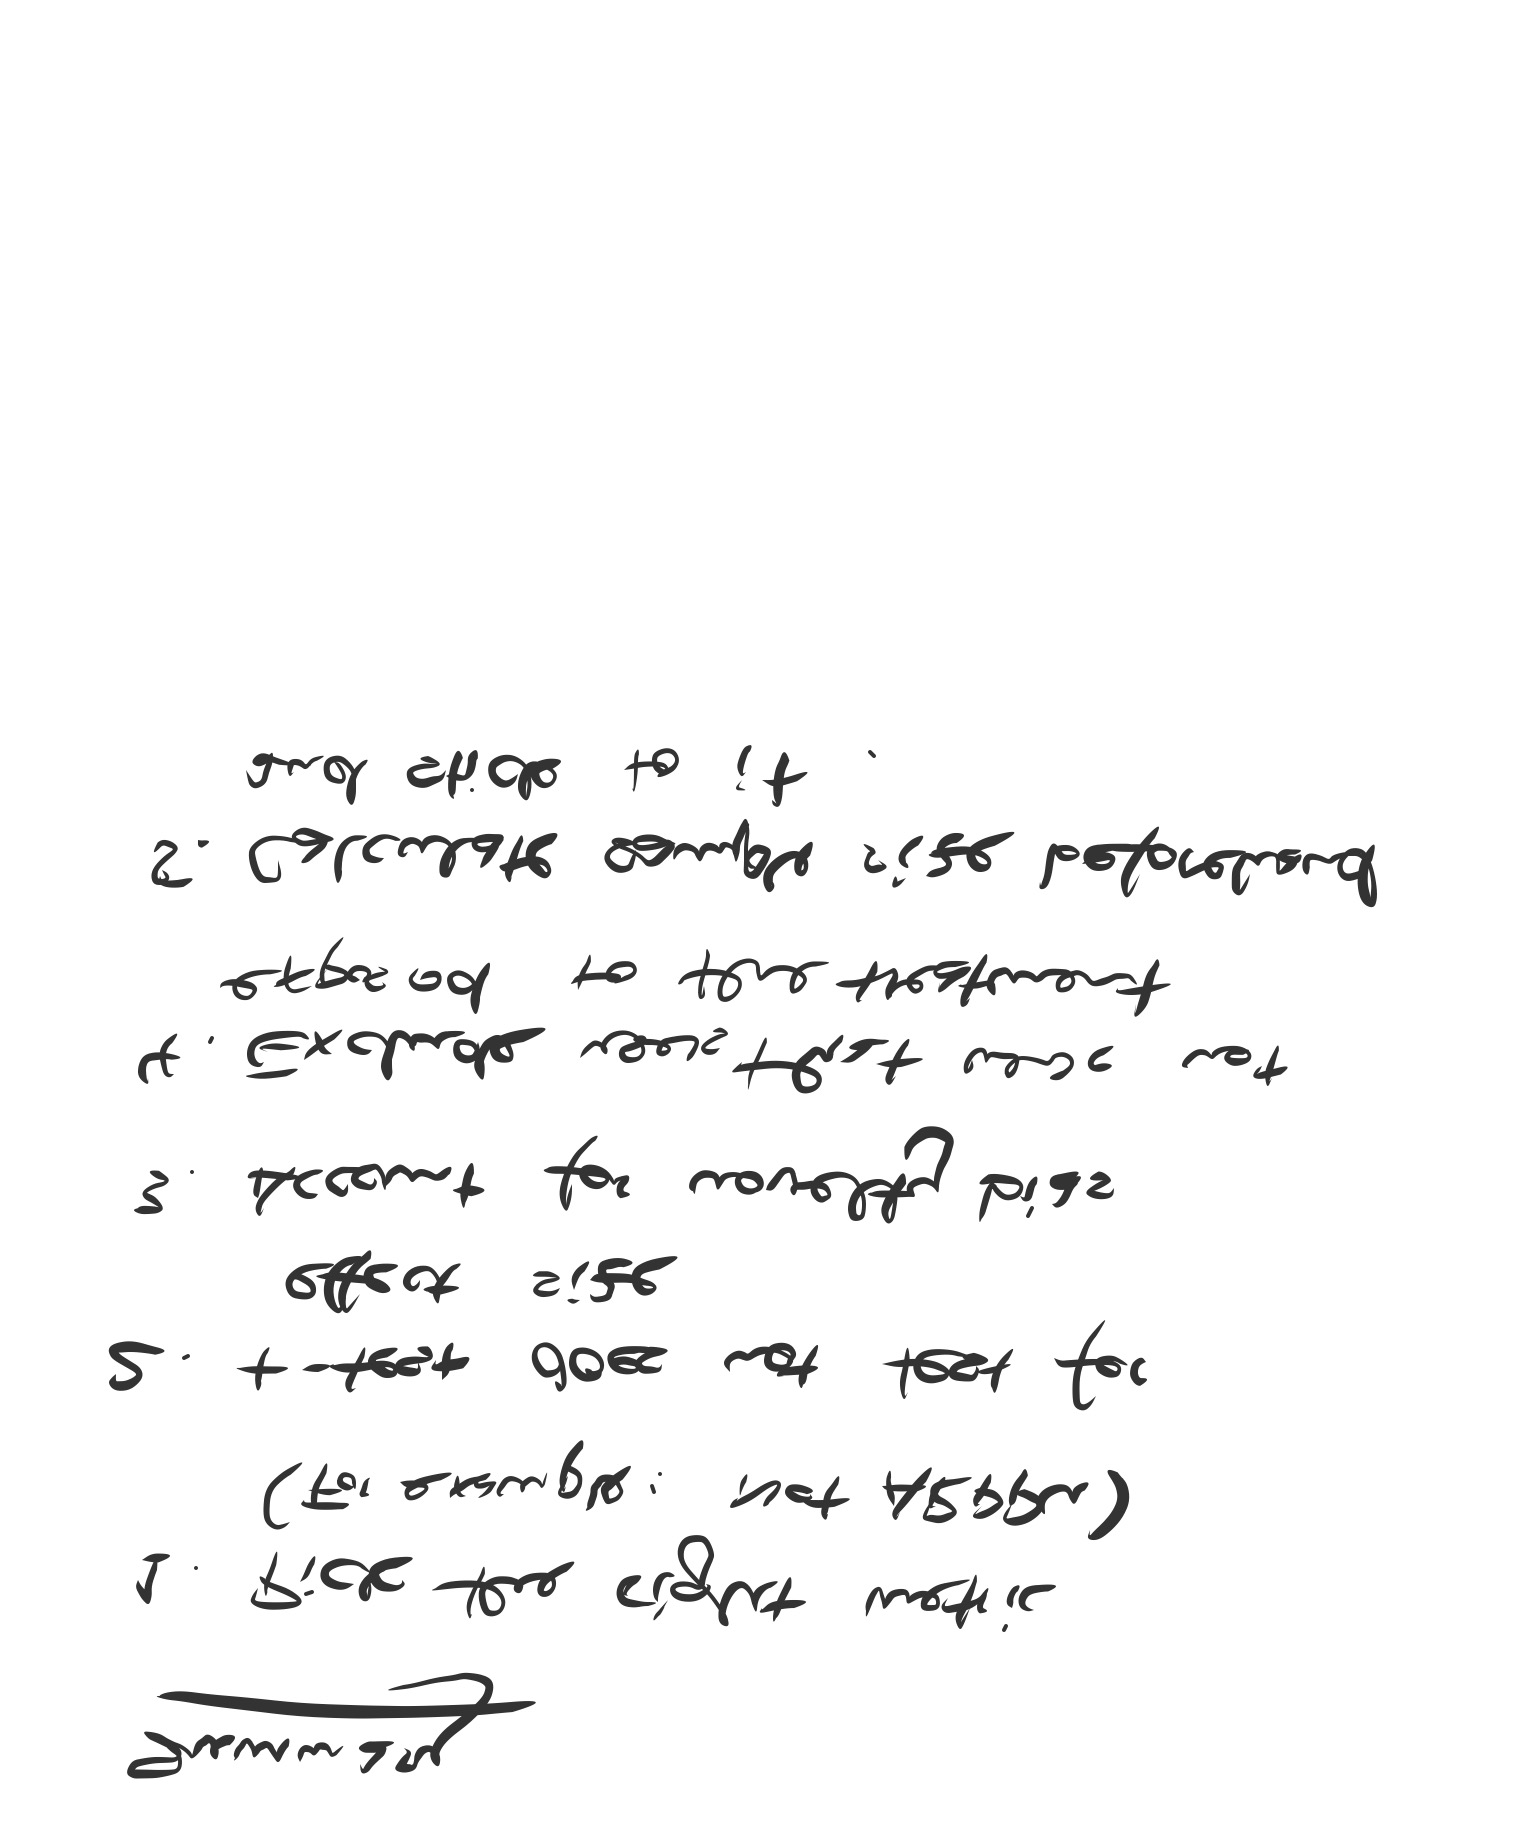 Summary
1. Pick the right metric
(For example: Not ARPPU)
2. t-test does not test for
effect size
3. Account for novelty bias
4. Exclude users that were not
exposed to the treatment
5. Calculate sample size beforehand
and stick to it.